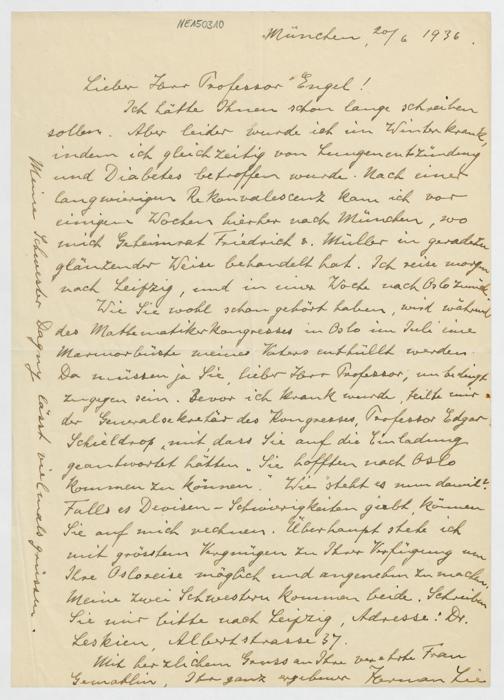 NE150310
München, 20/6 1936.
Lieber Herr Professor Engel!
Ich hätte Ihnen schon lange schreiben
sollen. Aber leider wurde ich im Winter krank,
indem ich gleichzeitig von Lungenentzündung
und Diabetes betroffen wurde. Nach einer
langwierigen Rekonvalescenz kam ich vor
einigen Wochen hierher nach München, wo
mich Geheimrat Friedrich v. Müller in geradezu
glänzender Weise behandelt hat. Ich reise morgen
nach Leipzig, und in einer Woche nach Oslo zurück.
Wie Sie wohl schon gehört haben, wird während
des Mathematikerkongresses in Oslo im Juli eine
Marmorbüste meines Vaters enthüllt werden.
Da müssen ja Sie, lieber Herr Professor, unbedingt
zugegen sein. Bevor ich krank wurde, teilte mir
der Generalsekretär des Kongresses, Professor Edgar
Schieldrop, mit dass Sie auf die Einladung
geantwortet hätten „Sie hofften nach Oslo
kommen zu können." Wie steht es nun damit?
Falls es Devisen-Schwierigkeiten giebt, können
Sie auf mich rechnen. Überhaupt stehe ich
mit grösstem Vergnügen zu Ihrer Verfügung um
Ihre Osloreise möglich und angenehm zu machen.
Meine zwei Schwestern kommen beide. Schreiben
Sie mir bitte nach Leipzig, Adresse: Dr.
Leskien, Albertstrasse 37.
Mit herzlichem Gruss an Ihre verehrte Frau
Gemahlin, Ihr ganz ergebener Herman Lie
Meine Schwester Dagny lässt vielmals grüssen.